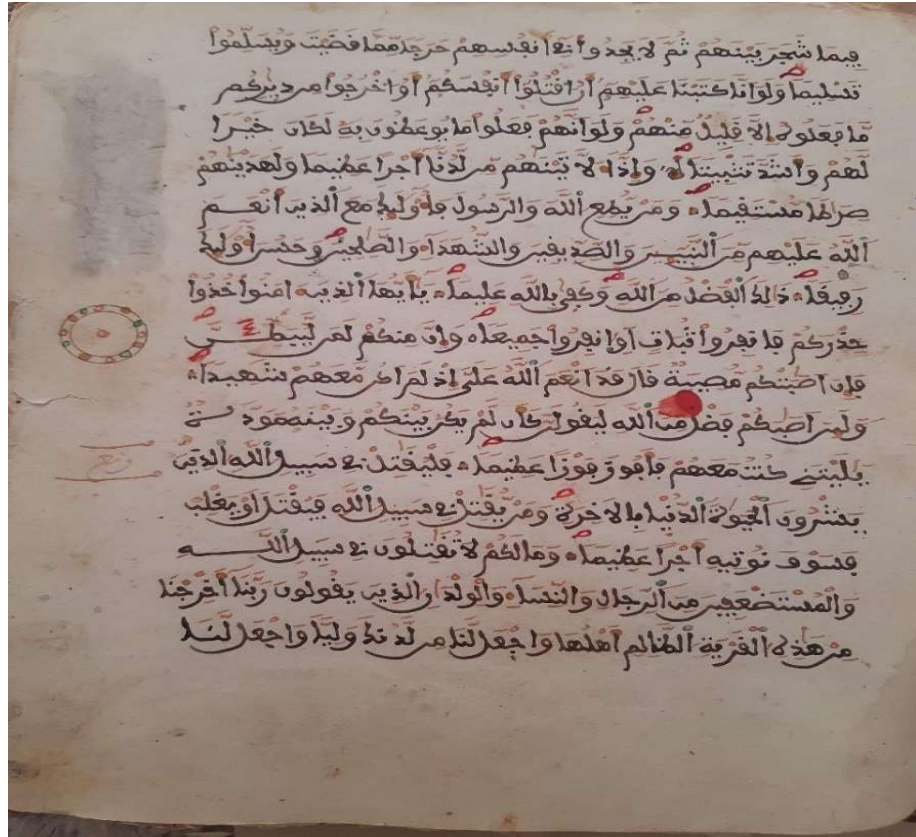 فيما شجر بينهم ثم لا يجدوا في أنفسهم حرجا مما قضيت ويسلموا
تسليما ولو انا كتبنا عليهم أن اقتلوا أنفسكم أو اخرجوا من ديركم
ما فعلوه إلا قليل منهم ولو انهم فعلوا ما يوعظون به لكان خيرا
لهم وأشد تثبيتا وإذا لأتينهم من لدنا أجرا عظيما ولهدينهم
صراطا مستقيما ومن يطع الله والرسول فأوليك مع الذين أنعم
الله عليهم من النبيين والصديقين والشهداء والصلحين وحسن أوليك
رفيقا ذلك الفضل من الله وكفى بالله عليما يأيها الذين امنوا خذوا
حذركم فانفروا ثبات او انفروا جميعا وإن منكم لمن ليبطئن
فإن اصبتكم مصيبة قال قد انعم الله علي إذ لم اكن معهم شهيدا
ولين اصبكم فضل من الله ليقولن كأن لم يكن بينكم وبينه مودة
يليتني كنت معهم فأفوز فوزا عظيما فليقتل في سبيل الله الذين
يشرون الحيوة الدنيا بالاخرة ومن يقتل في سبيل الله فيقتل او يغلب
فسوف نوتيه أجرا عظيما وما لكم لا تقتلون في سبيل الله
والمستضعفين من الرجال والنساء والولدان الذين يقولون ربنا أخرجنا
من هذه القرية الظالم أهلها واجعل لنا من لدنك وليا واجعل لنا